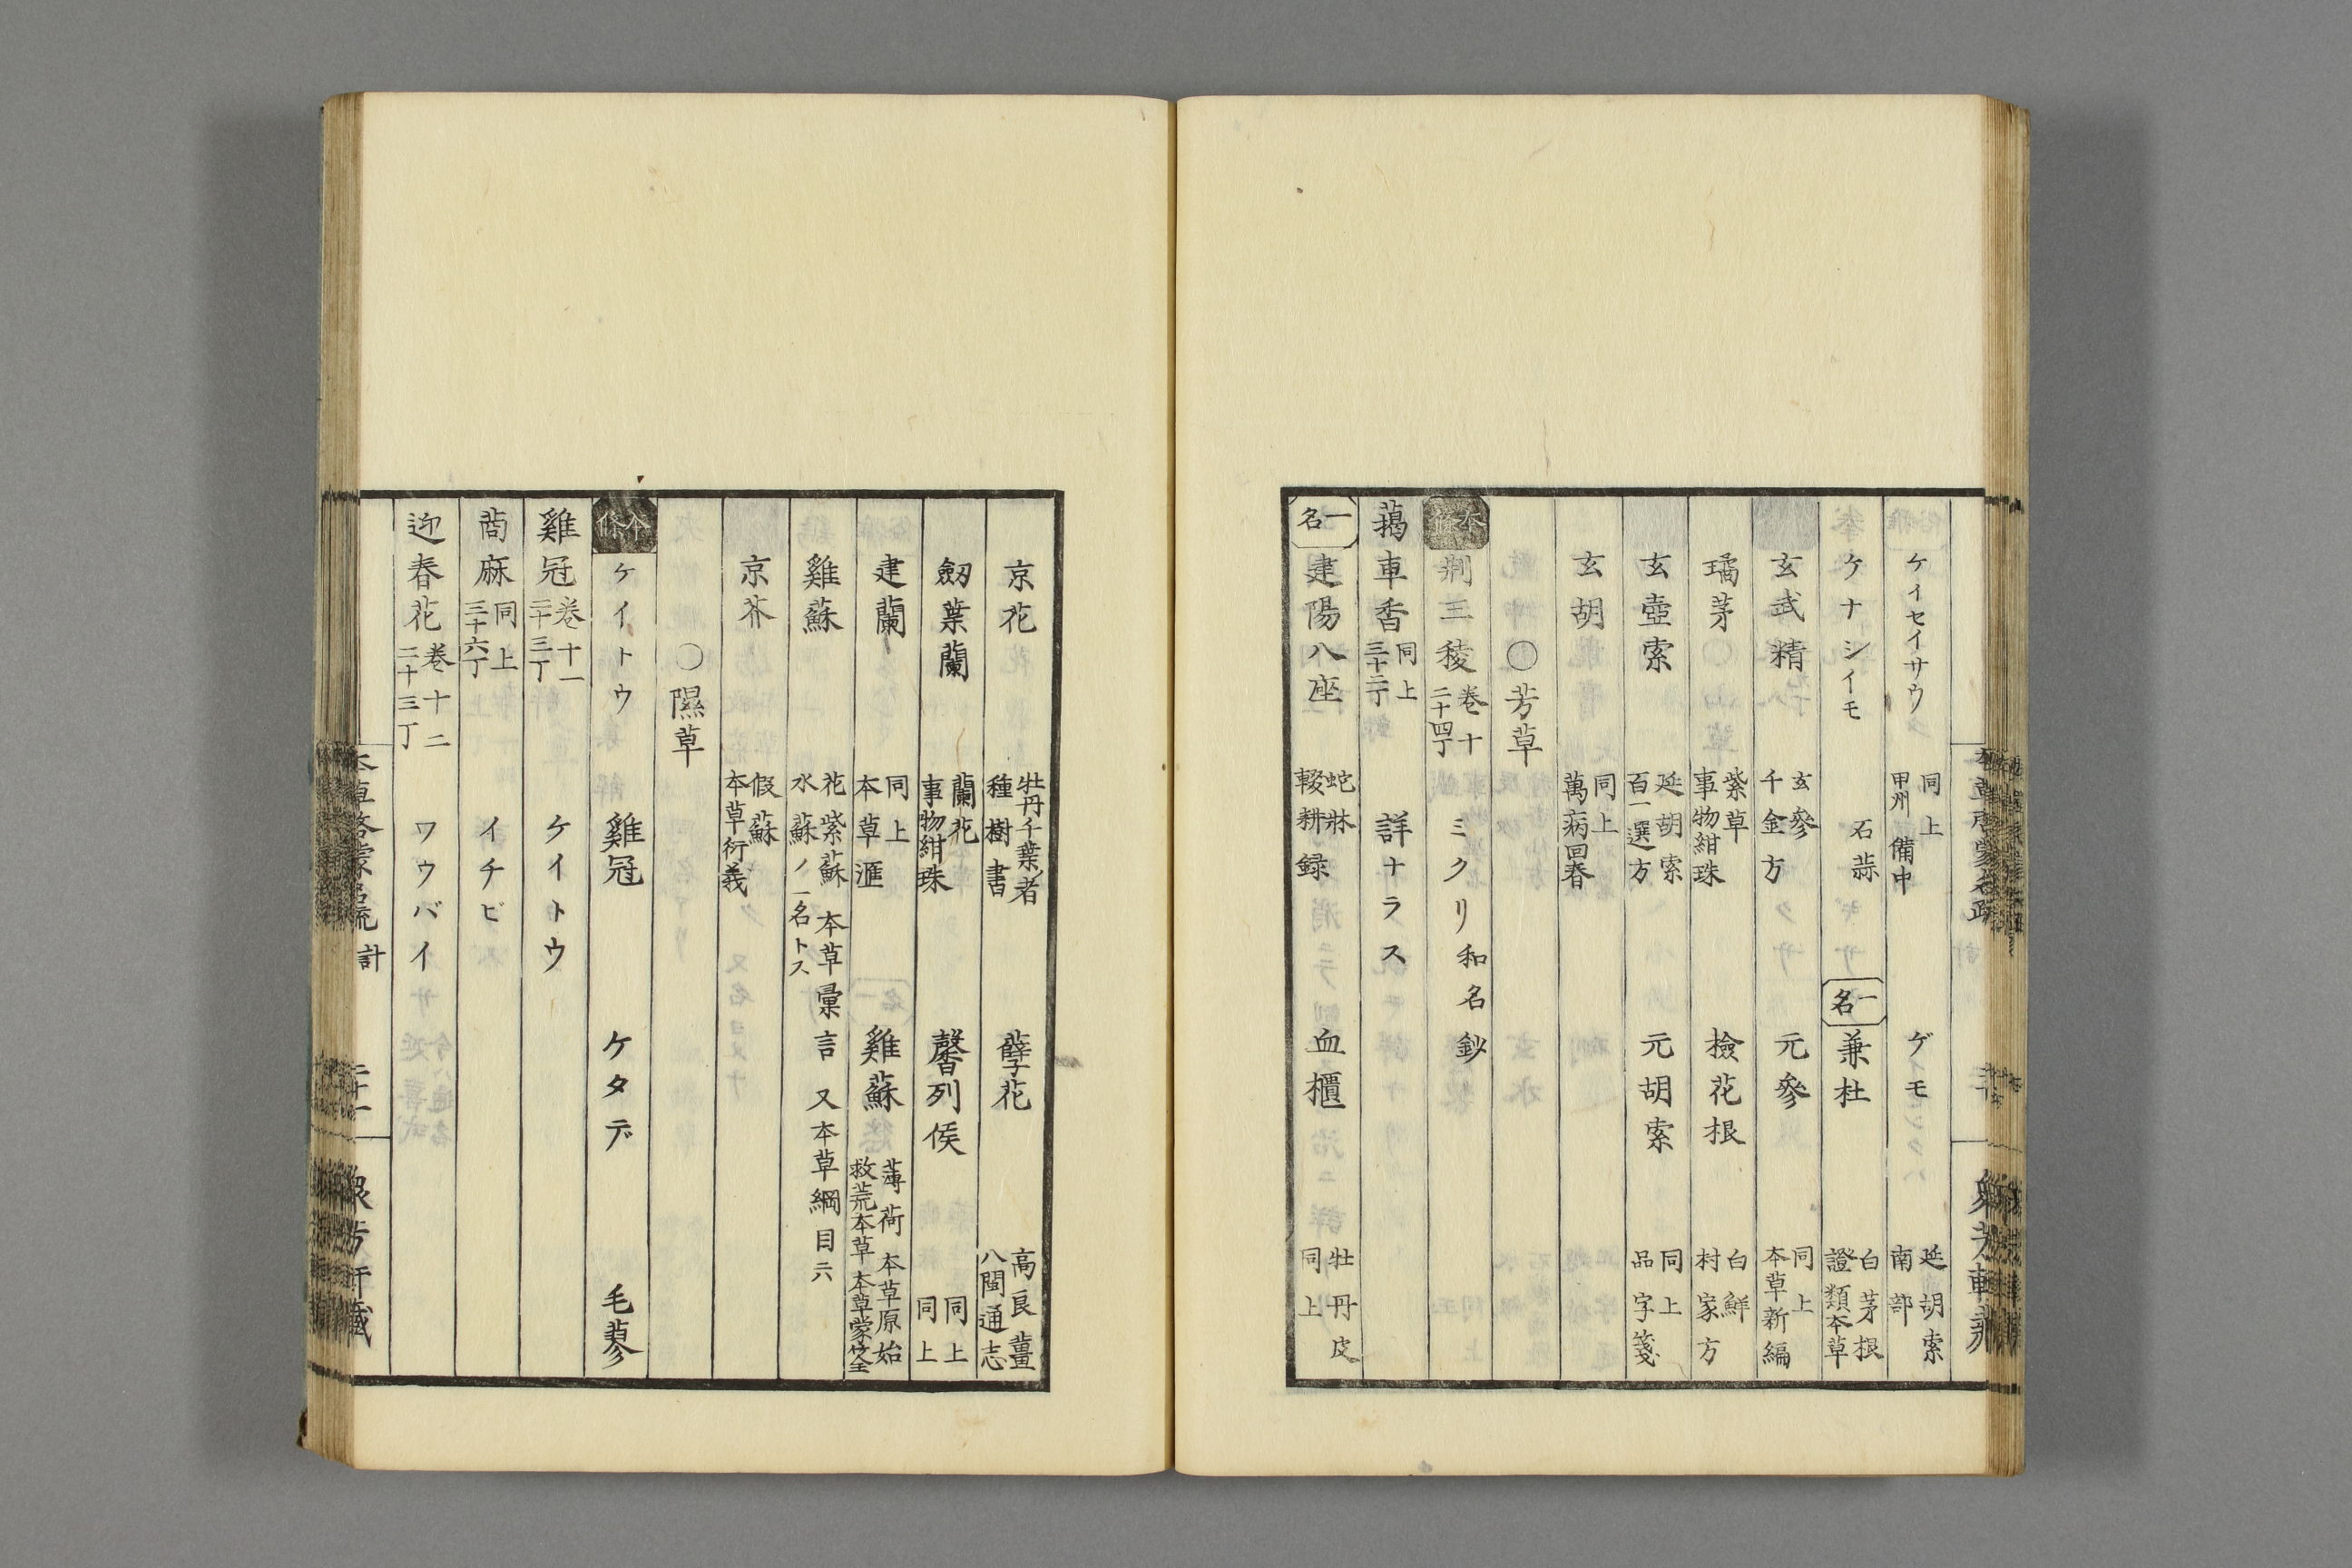 ケイセイサウ 同上 甲州 備中 ゲイモ 延胡索 南部
ケナシイモ 石蒜 一名 兼杜 白茅根 證類本草
玄武精 玄參 千金方 元參 同上 本草新編
璚茅 紫草 事物紺珠 檢花根 白鮮 村家方
玄壺索 延胡索 百一選方 元胡索 同上 品字箋
玄胡 同上 萬病回春
〇芳草
本條 荆三稜 卷十 二十四丁 ミクリ 和名鈔
藒車香 同上 三十二丁 詳ナラス
一名 建陽八座 蛇牀 輟耕録 血櫃 牡丹皮 同上
京花 牡丹千葉者 種樹書 孽花 高良薑 八閩通志
劒葉蘭 蘭花 事物紺珠 馨列侯 同上 同上
建蘭 同上 本草滙 雞蘇 薄荷 本草原始 救荒本草 本草蒙筌
雞蘇 花紫蘇 本草彙言 又本草綱目六 水蘇ノ一名トス
京芥 假蘇 本草衍義
〇隰草
本條 ケイトウ 雞冠 ケタデ 毛蓼
雞冠 卷十一 二十三丁 ケイトウ
䔛麻 同上 三十六丁 イチビ
迎春花 卷十二 二十三丁 ワウバイ
計